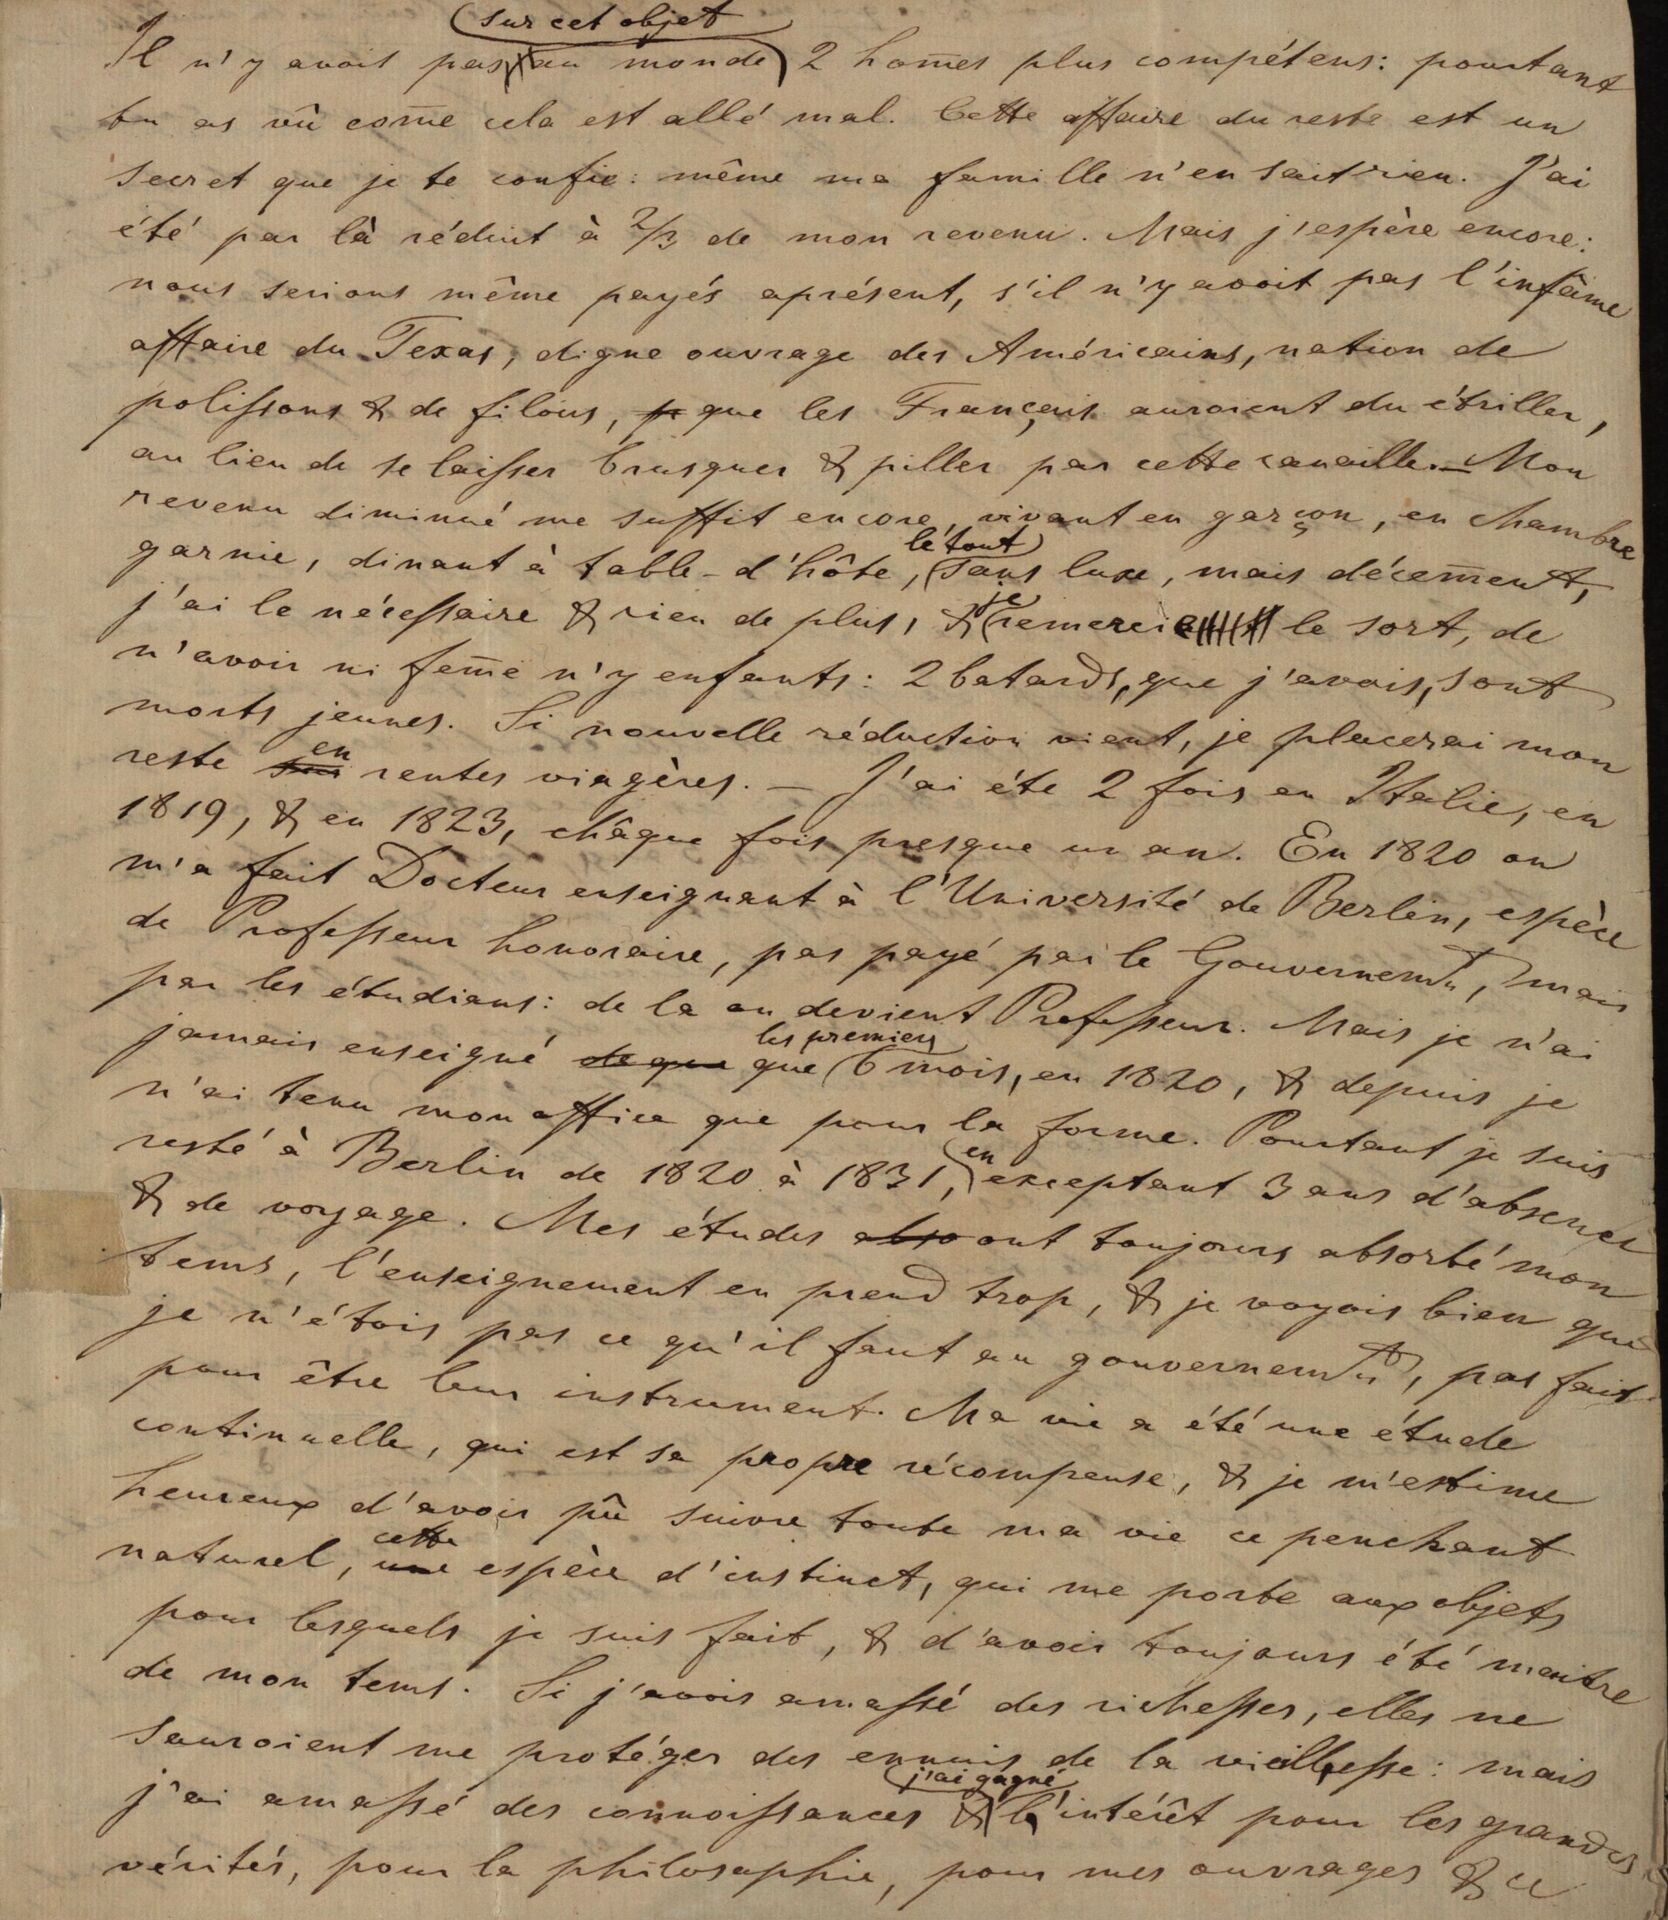 sur cet objet
Il n'y avoit pas au monde 2 hom̄es plus compétens: pourtant
tu as vû com̄e cela est allé mal. Cette affaire du reste est un
secret que je te confie: même ma famille n'en sait rien. J'ai
été par là réduit à 2/3 de mon revenu. Mais j'espère encore:
nous serions même payés aprésent, s'il n'y avoit pas l'infâme
affaire du Texas, digne ouvrage des Américains, nation de
polissons & de filous, que les Français auroient du étriller,
au lieu de se laisser brusquer & piller par cette canaille. — Mon
revenu diminué me suffit encore, vivant en garçon, en chambre
le tout
garnie, dinant à table-d'hôte, sans luxe, mais décem̄ent,
je
j'ai le nécessaire & rien de plus, & remercie le sort, de
n'avoir ni fem̄e n'y enfants: 2 batards, que j'avois, sont
morts jeunes. Si nouvelle réduction vient, je placerai mon
en
reste rentes viagères. — J'ai éte 2 fois en Italie, en
1819, & en 1823, châque fois presque un an. En 1820 on
m'a fait Docteur enseignant à l'Université de Berlin, espèce
de Professeur honoraire, pas payé par le Gouvernemt, mais
par les étudians: de la on devient Professeur. Mais je n'ai
les premiers
jamais enseigné de que que 6 mois, en 1820, & depuis je
n'ai tenu mon office que pour la forme. Pourtant je suis
en
resté à Berlin de 1820 à 1831, exceptant 3 ans d'absence
& de voyage. Mes études abso ont toujours absorbé mon
tems, l'enseignement en prend trop, & je voyois bien que
je n'étois pas ce qu'il faut au gouvernemt, pas fait
pour être leur instrument. Ma vie a été une étude
continuelle, qui est sa propre récompense, & je m'estime
heureux d'avoir pû suivre toute ma vie ce penchant
cette
naturel, une espèce d'instinct, qui me porte aux objets
pour lesquels je suis fait, & d'avoir toujours été maitre
de mon tems. Si j'avois amassé des richesses, elles ne
sauroient me protéger des ennuis de la vieillesse: mais
j'ai gagné
j'ai amassé des connoissances & l'intérêt pour les grandes
vérités, pour la philosophie, pour mes ouvrages & ce